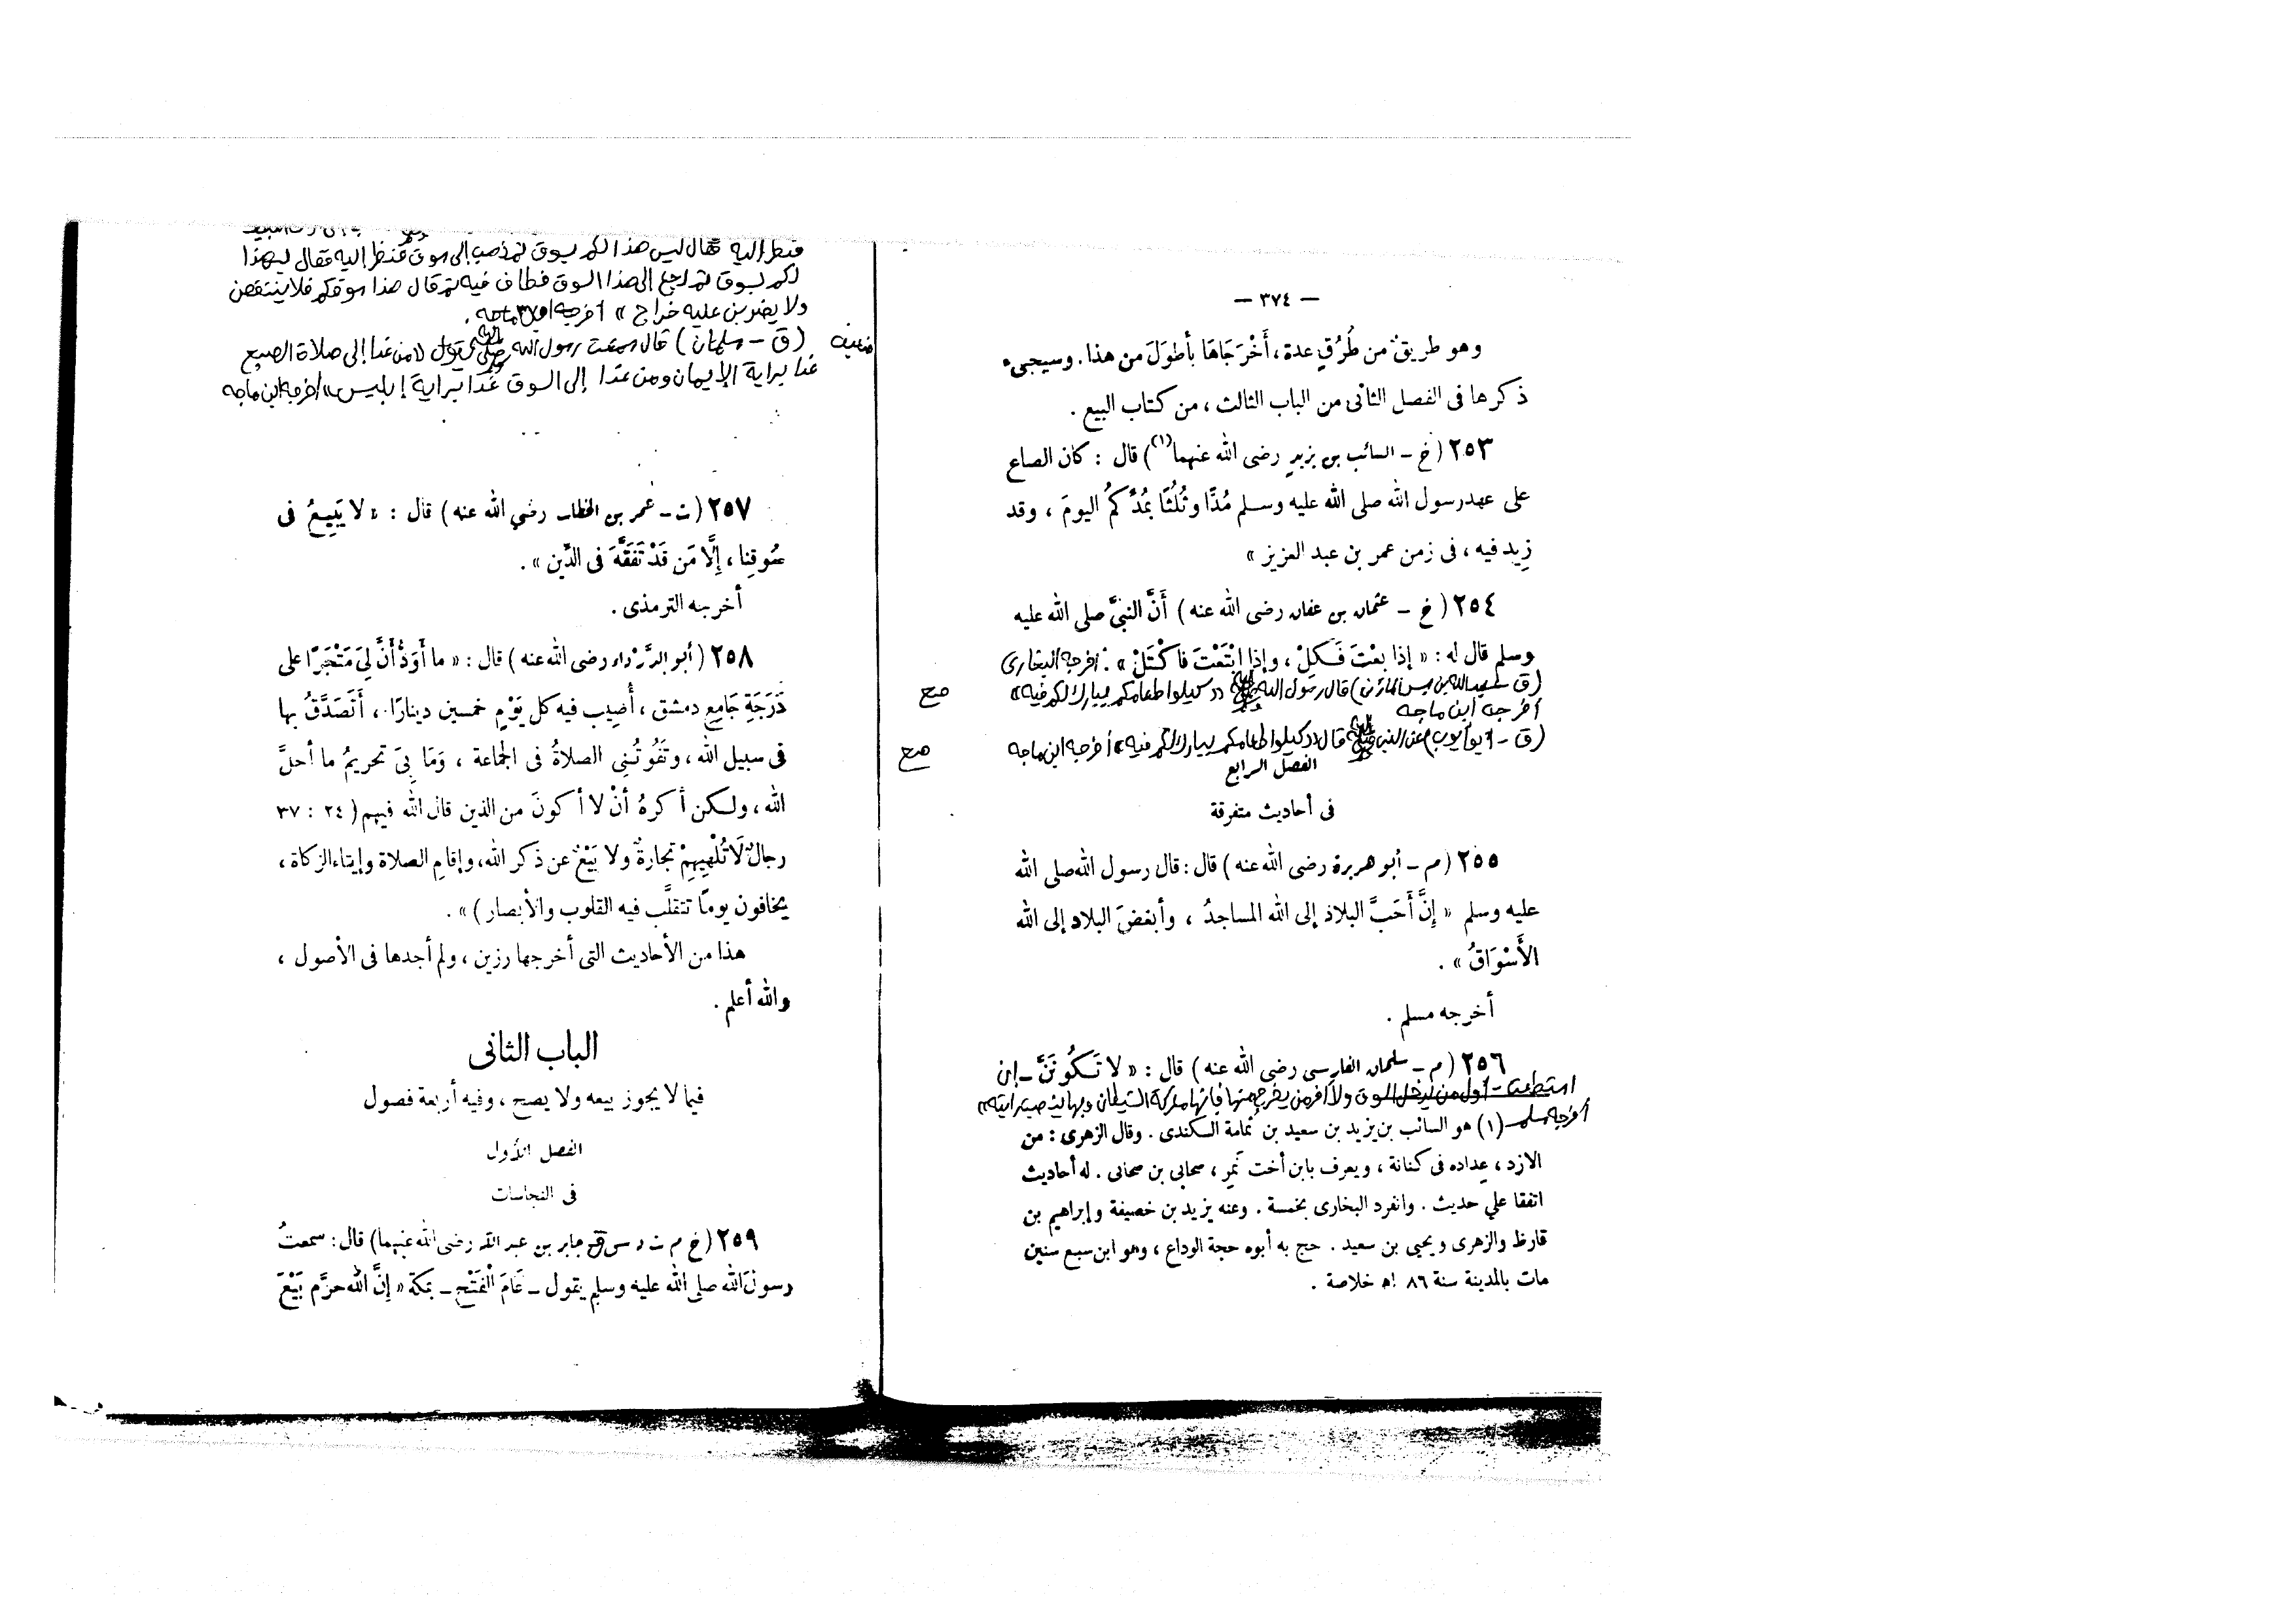 — ٣٧٤ —
وهو طريقٌ من طُرُقٍ عدة، أَخْرَجَاهَا بأطوَلَ من هذا. وسيجىء
ذكرها فى الفصل الثانى من الباب الثالث، من كتاب البيع.
٢٥٣ (خ – السائب بن يزيد رضى الله عنهما(١)) قال: كان الصاع
على عهد رسول الله صلى الله عليه وسلم مُدًّا وثُلُثًا بمُدِّكمُ اليومَ، وقد
زِيد فيه، فى زمن عمر بن عبد العزيز»
٢٥٤ (خ – عثمان بن عفان رضى الله عنه) أَنَّ النبىَّ صلى الله عليه
وسلم قال له: «إذا بِعْتَ فَكِلْ، وإذا ابْتَعْتَ فاكْتَلْ». أخرجه البخارى
(ق – عبد الله بن بسر المازنى) قال رسول الله صلى الله عليه وسلم «كيلوا طعامكم يبارك لكم فيه»
صح
أخرجه ابن ماجه
(ق – أبو أيوب) عن النبى صلى الله عليه وسلم قال «كيلوا طعامكم يبارك لكم فيه» أخرجه ابن ماجه
صح
الفصل الرابع
فى أحاديث متفرقة
٢٥٥ (م – أبو هريرة رضى الله عنه) قال: قال رسول الله صلى الله
عليه وسلم «إنَّ أَحَبَّ البلاد إلى الله المساجدُ، وأبغضَ البلاد إلى الله
الأَسْوَاقُ».
أخرجه مسلم.
٢٥٦ (م – سلمان الفارسى رضى الله عنه) قال: «لا تَكُونَنَّ – إن
استطعت – أول من يدخل السوق ولا آخر من يخرج منها فإنها معركة الشيطان وبها ينصب رايته»
أخرجه مسلم
(١) هو السائب بن يزيد بن سعيد بن ثمامة الكندى. وقال الزهرى: من
الازد، عداده فى كنانة، ويعرف بابن أخت نَمِر، صحابى بن صحابى. له أحاديث
اتفقا على حديث. وانفرد البخارى بخمسة. وعنه يزيد بن خصيفة وإبراهيم بن
قارظ والزهرى ويحيى بن سعيد. حج به أبوه حجة الوداع، وهو ابن سبع سنين
مات بالمدينة سنة ٨٦ اه خلاصة.
فنظر إليه فقال ليس هذا لكم بسوق ثم ذهب إلى سوق فنظر إليه فقال ليس هذا
لكم بسوق ثم رجع إلى هذا السوق فطاف فيه ثم قال هذا سوقكم فلا ينتقصن
ولا يضربن عليه خراج» أخرجه ابن ماجه.
ضعيف (ق – سلمان) قال سمعت رسول الله صلى الله عليه وسلم يقول «من غدا إلى صلاة الصبح
غدا براية الإيمان ومن غدا إلى السوق غدا براية إبليس» أخرجه ابن ماجه
٢٥٧ (ت – عمر بن الخطاب رضى الله عنه) قال: «لا يَبِيعُ فى
سُوقِنا، إلَّا مَن قَدْ تَفَقَّهَ فى الدِّين».
أخرجه الترمذى.
٢٥٨ (أبو الدَّرْداء رضى الله عنه) قال: «ما أَوَدُّ أَنَّ لِىَ مَتْجَرًا على
دَرَجَةِ جَامِعِ دمشق، أُصِيب فيه كل يَوْمٍ خمسين دينارًا، أَتَصَدَّقُ بها
فى سبيل الله، وتَفُوتُنِى الصلاةُ فى الجماعة، وَمَا بِىَ تحريمُ ما أحلَّ
الله، ولكن أكرهُ أنْ لا أكونَ من الذين قال الله فيهم (٢٤ : ٣٧
رجالٌ لَا تُلْهِيهِمْ تجارةٌ ولا بَيْعٌ عن ذكر الله، وإقامِ الصلاة وإيتاء الزكاة،
يخافون يومًا تتقلَّب فيه القلوب والأبصار)».
هذا من الأحاديث التى أخرجها رزين، ولم أجدها فى الأصول،
والله أعلم.
الباب الثانى
فيما لا يجوز بيعه ولا يصح، وفيه أربعة فصول
الفصل الأول
فى النجاسات
٢٥٩ (خ م ت د س ق جابر بن عبد الله رضى الله عنهما) قال: سمعتُ
رسولَ الله صلى الله عليه وسلم يقول – عَامَ الْفَتْحِ – بمكة «إنَّ الله حرَّم بَيْعَ